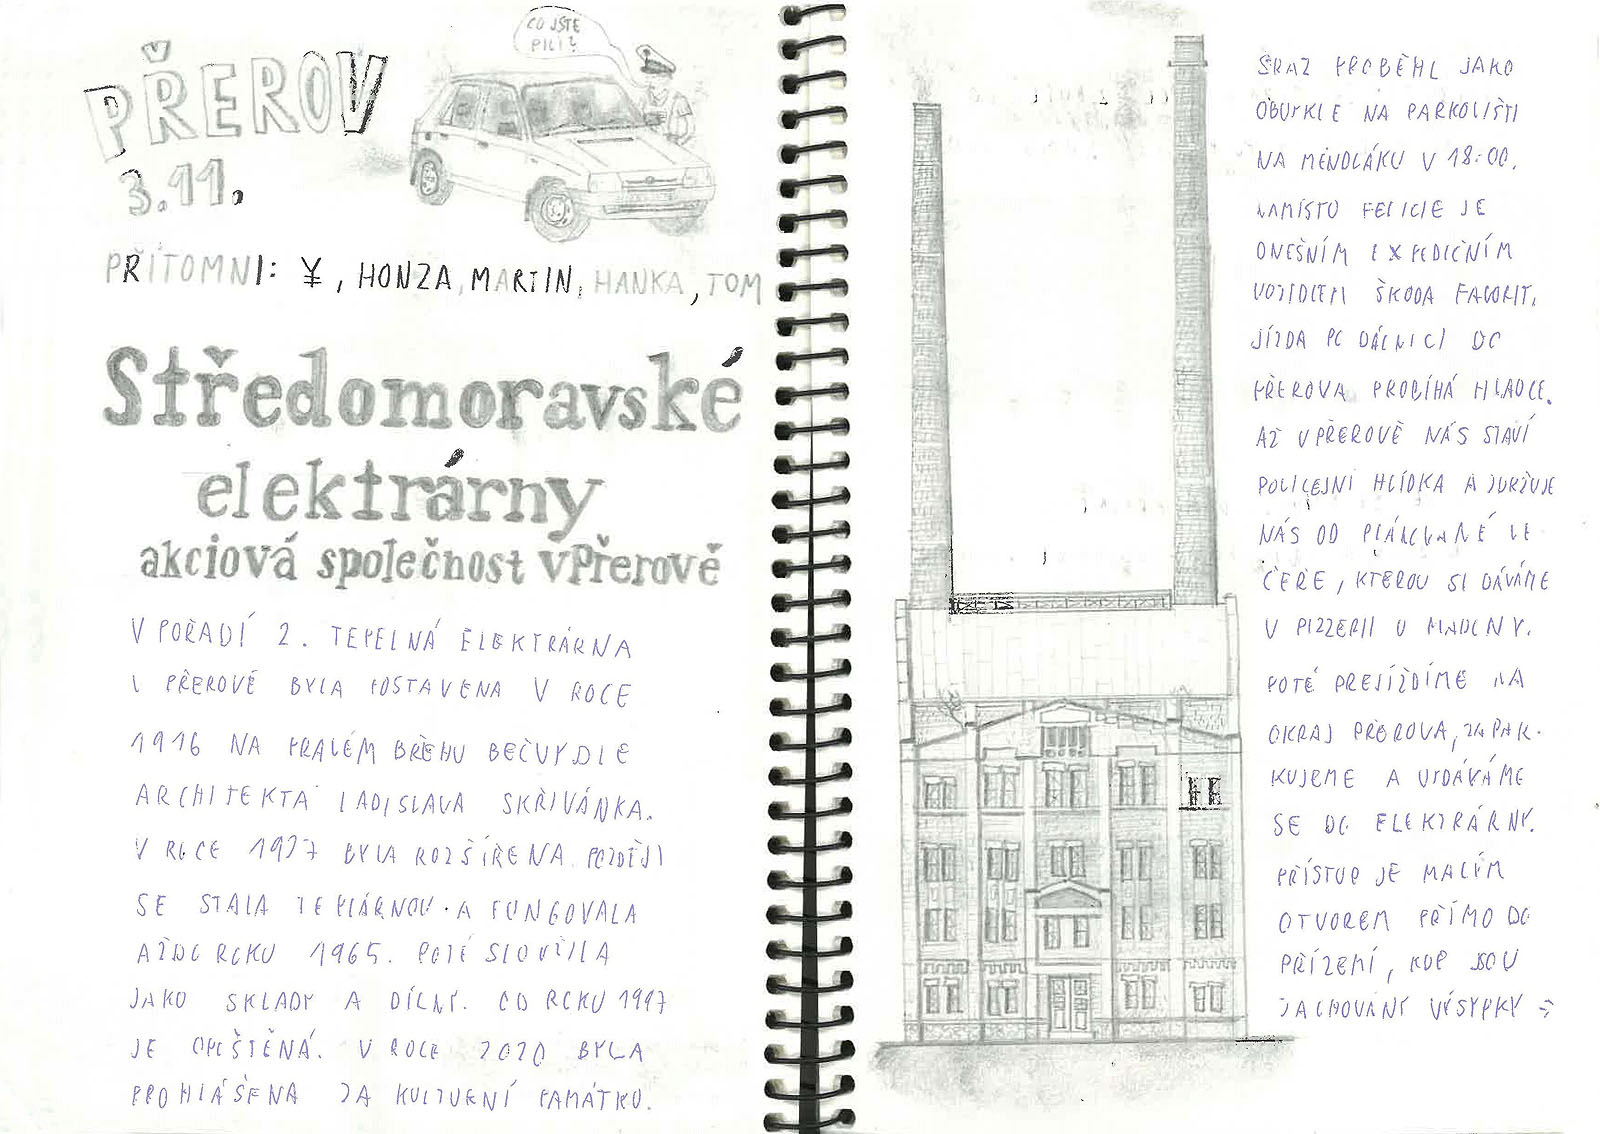 PŘEROV
3.11,
CO JSTE
PILI?
PŘÍTOMNI: ¥, HONZA, MARTIN, HANKA, TOM
Středomoravské
elektrárny
akciová společnost v Přerově
V POŘADÍ 2. TEPELNÁ ELEKTRÁRNA
V PŘEROVĚ BYLA POSTAVENA V ROCE
1916 NA PRAVÉM BŘEHU BEČVY DLE
ARCHITEKTA LADISLAVA SKŘIVÁNKA.
V ROCE 1927 BYLA ROZŠÍŘENA. POZDĚJI
SE STALA TEPLÁRNOU A FUNGOVALA
AŽ DO ROKU 1965. POTÉ SLOUŽILA
JAKO SKLADY A DÍLNY. OD ROKU 1997
JE OPUŠTĚNÁ. V ROCE 2020 BYLA
PROHLÁŠENA ZA KULTURNÍ PAMÁTKU.
SRAZ PROBĚHL JAKO
OBVYKLE NA PARKOVIŠTI
NA MENDLÁKU V 18:00.
NAMÍSTO FELICIE JE
DNEŠNÍM EXPEDIČNÍM
VOZIDLEM ŠKODA FAVORIT.
JÍZDA PO DÁLNICI DO
PŘEROVA PROBÍHÁ HLADCE.
AŽ V PŘEROVĚ NÁS STAVÍ
POLICEJNÍ HLÍDKA A ZDRŽUJE
NÁS OD PLÁNOVANÉ VE-
ČEŘE, KTEROU SI DÁVÁME
V PIZZERII U MADLNY.
POTÉ PŘEJÍŽDÍME NA
OKRAJ PŘEROVA, ZAPAR-
KUJEME A VYDÁVÁME
SE DO ELEKTRÁRNY.
PŘÍSTUP JE MALÝM
OTVOREM PŘÍMO DO
PŘÍZEMÍ, KDE JSOU
ZACHOVÁNY VÝSYPKY →